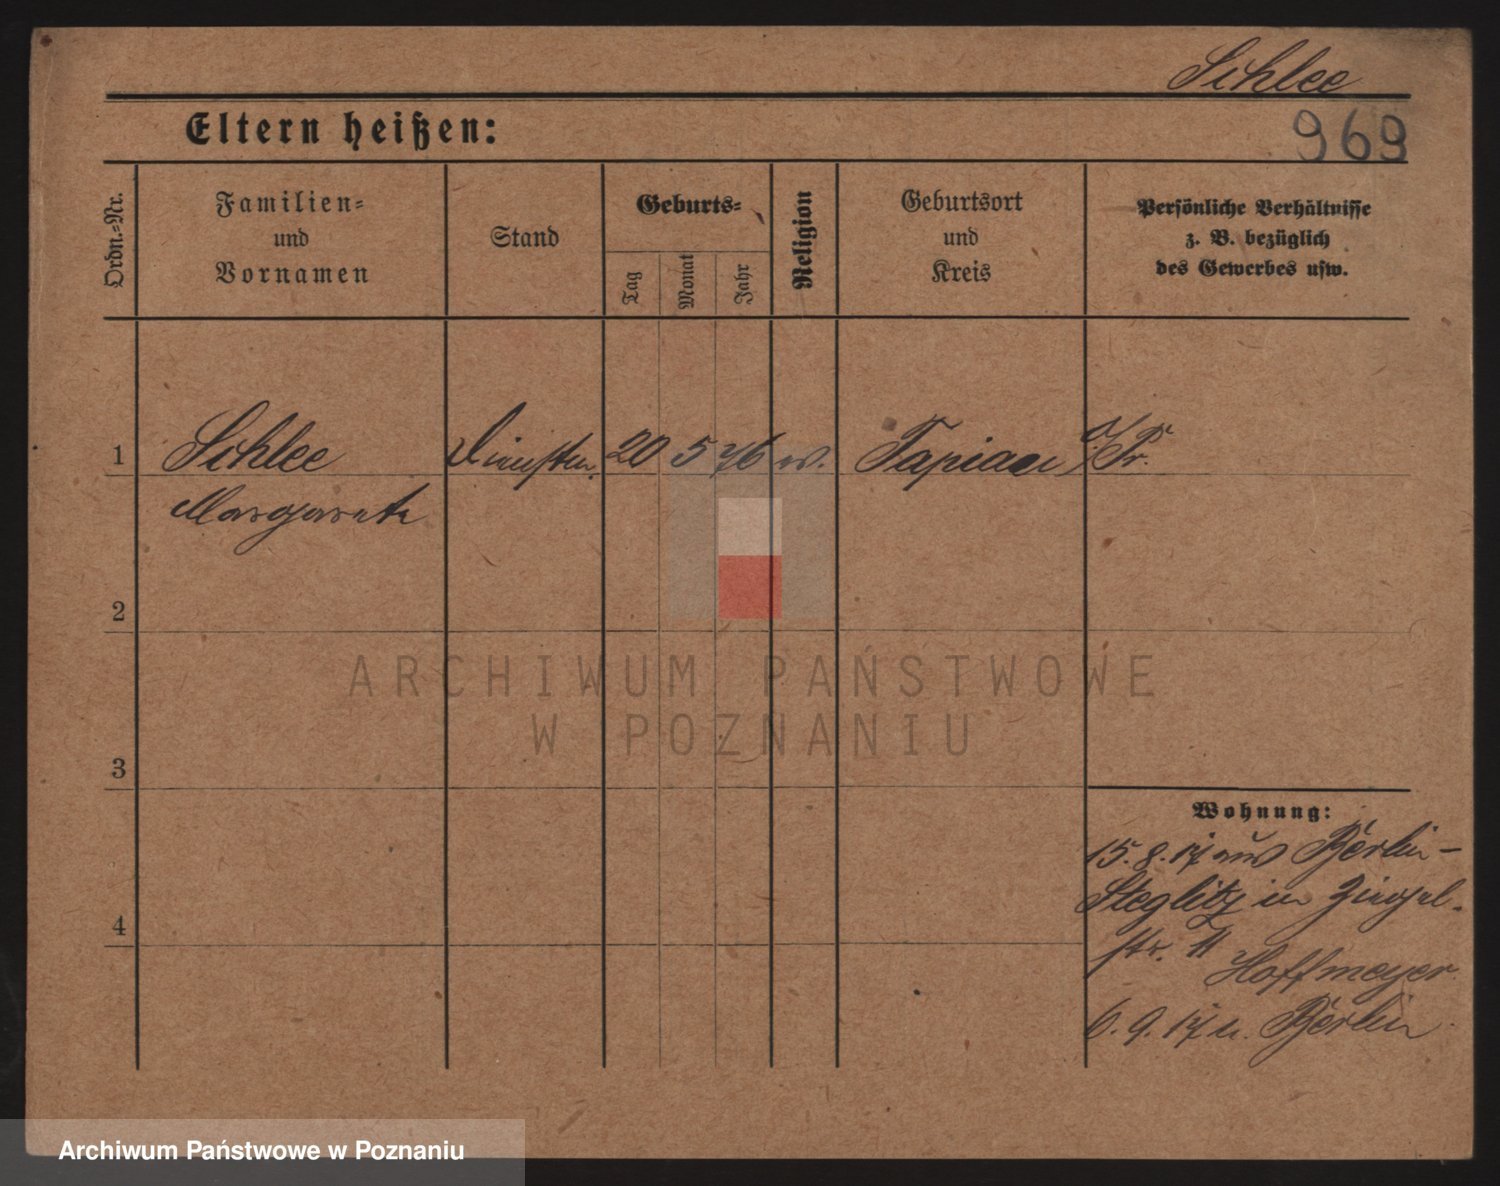 Schlee
969
Eltern heißen:
Ordn.-Nr.
Familien-
und
Vornamen
Stand
Geburts-
Tag
Monat
Jahr
Religion
Geburtsort
und
Kreis
Persönliche Verhältnisse
z. B. bezüglich
des Gewerbes usw.
1 Schlee 20 5 76 Tapiau O/Pr.
Margarete
2
3
4
ARCHIWUM PAŃSTWOWE
W POZNANIU
Wohnung:
15.8.17 aus Berlin-
Steglitz in Ziegel-
str. 11
Hoffmeyer
6.9.17 n. Berlin
Archiwum Państwowe w Poznaniu